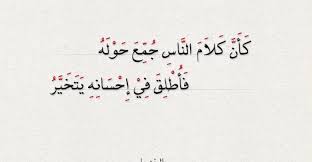 كَأَنَّ كَلَامَ النَّاسِ جُمِّعَ حَوْلَهُ
فَأُطْلِقَ فِيْ إِحْسَانِهِ يَتَخَيَّرُ